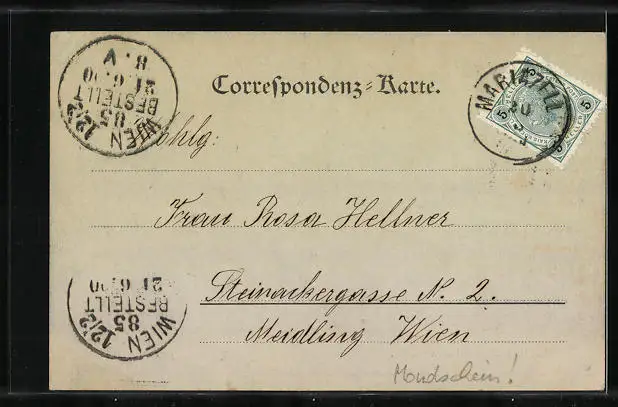 Correspondenz-Karte.
MARIAZELL
20
5 5
WIEN 12/2
85
BESTELLT
21.6.00
8.V
Wohlg:
Frau Rosa Hellner
Steinackergasse N. 2.
Meidling Wien
WIEN 12/2
85
BESTELLT
21.6.00
Mondschein!